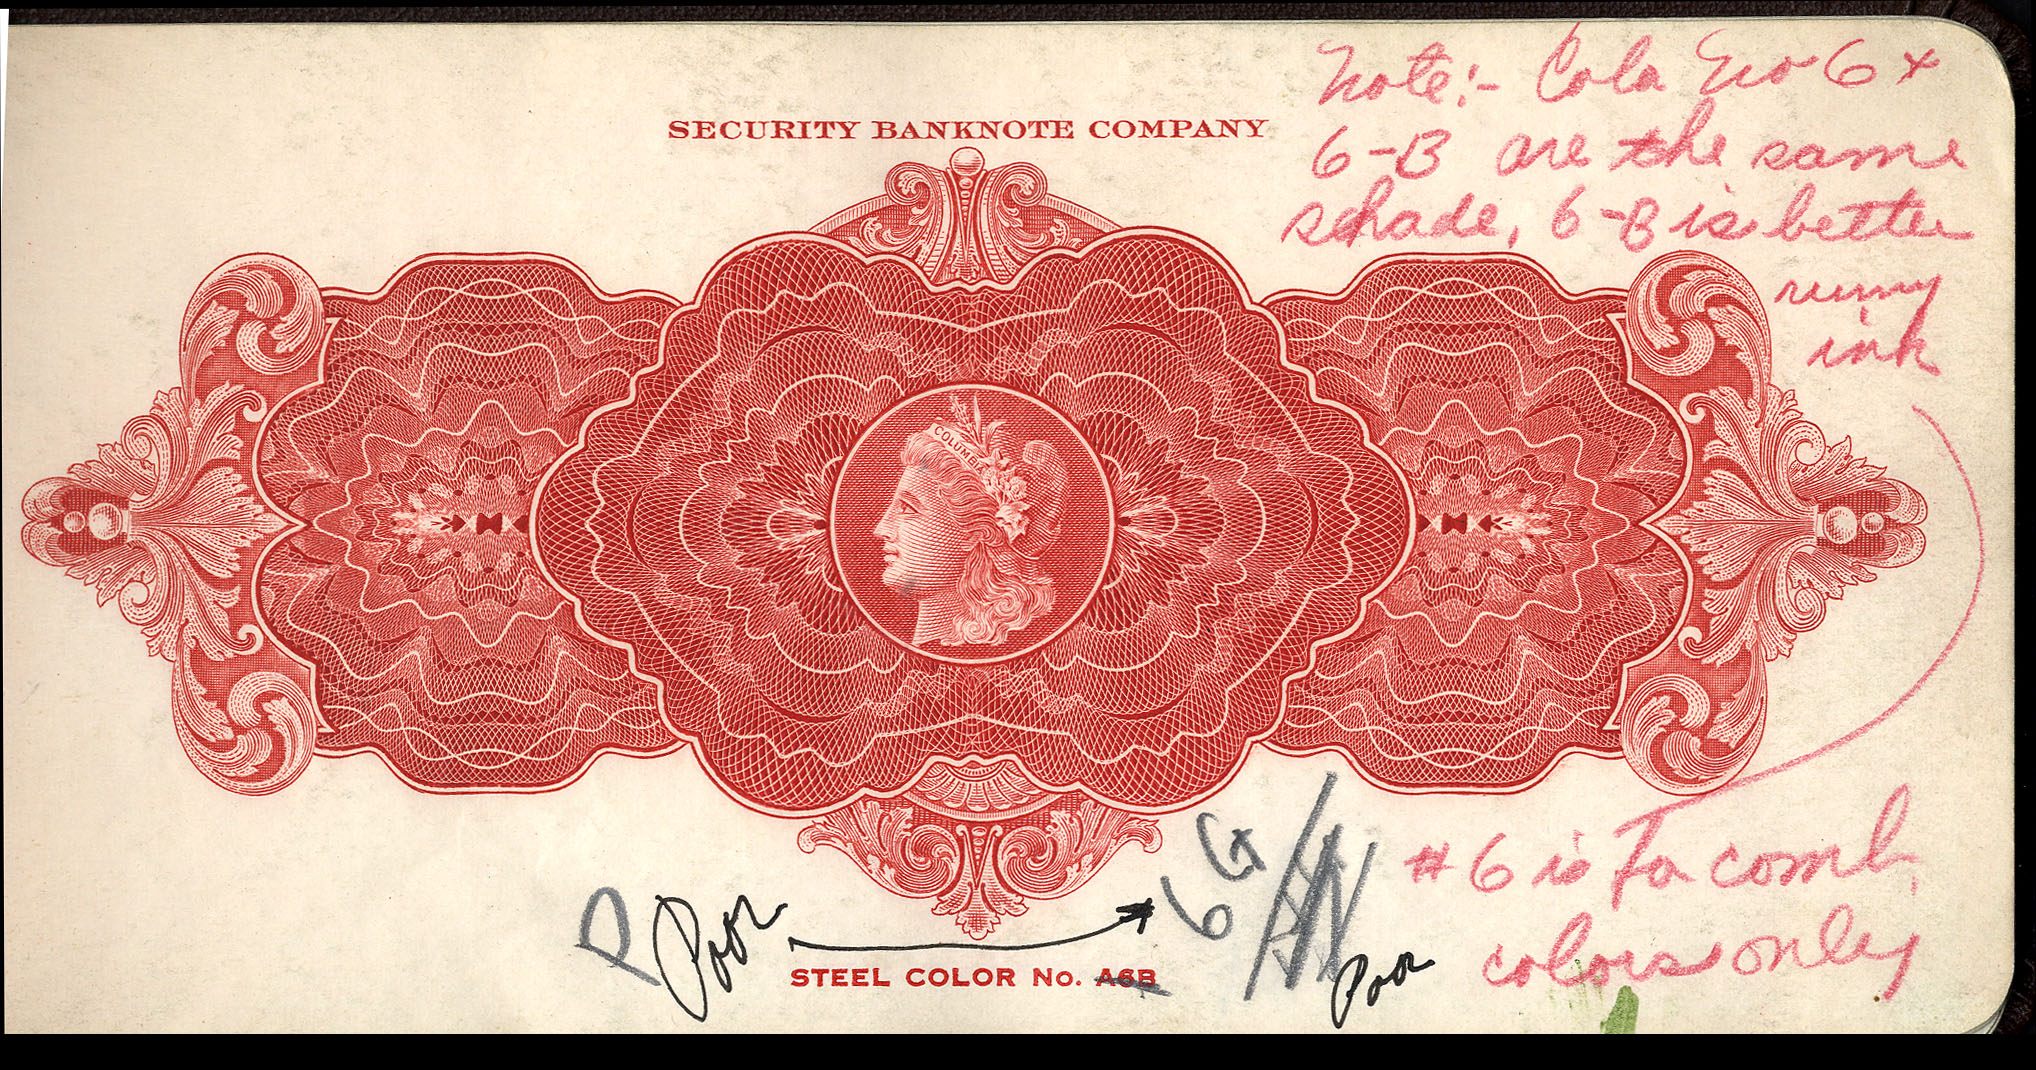 Note:- Color No 6 +
SECURITY BANKNOTE COMPANY
6-B are the same
shade, 6-B is better
runny
ink
COLUMBIA
6 G
# 6 is For comb.
P Poor
STEEL COLOR No. A6B
Poor
colors only